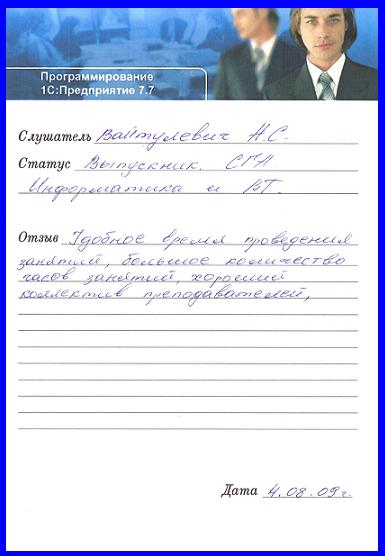 Программирование
1С:Предприятие 7.7
Слушатель Войтулевич А.С.
Статус Выпускник. СГА
Информатика и ВТ.
Отзыв Удобное время проведения
занятий, большое количество
часов занятий, хороший
коллектив преподавателей,
Дата 4.08.09г.